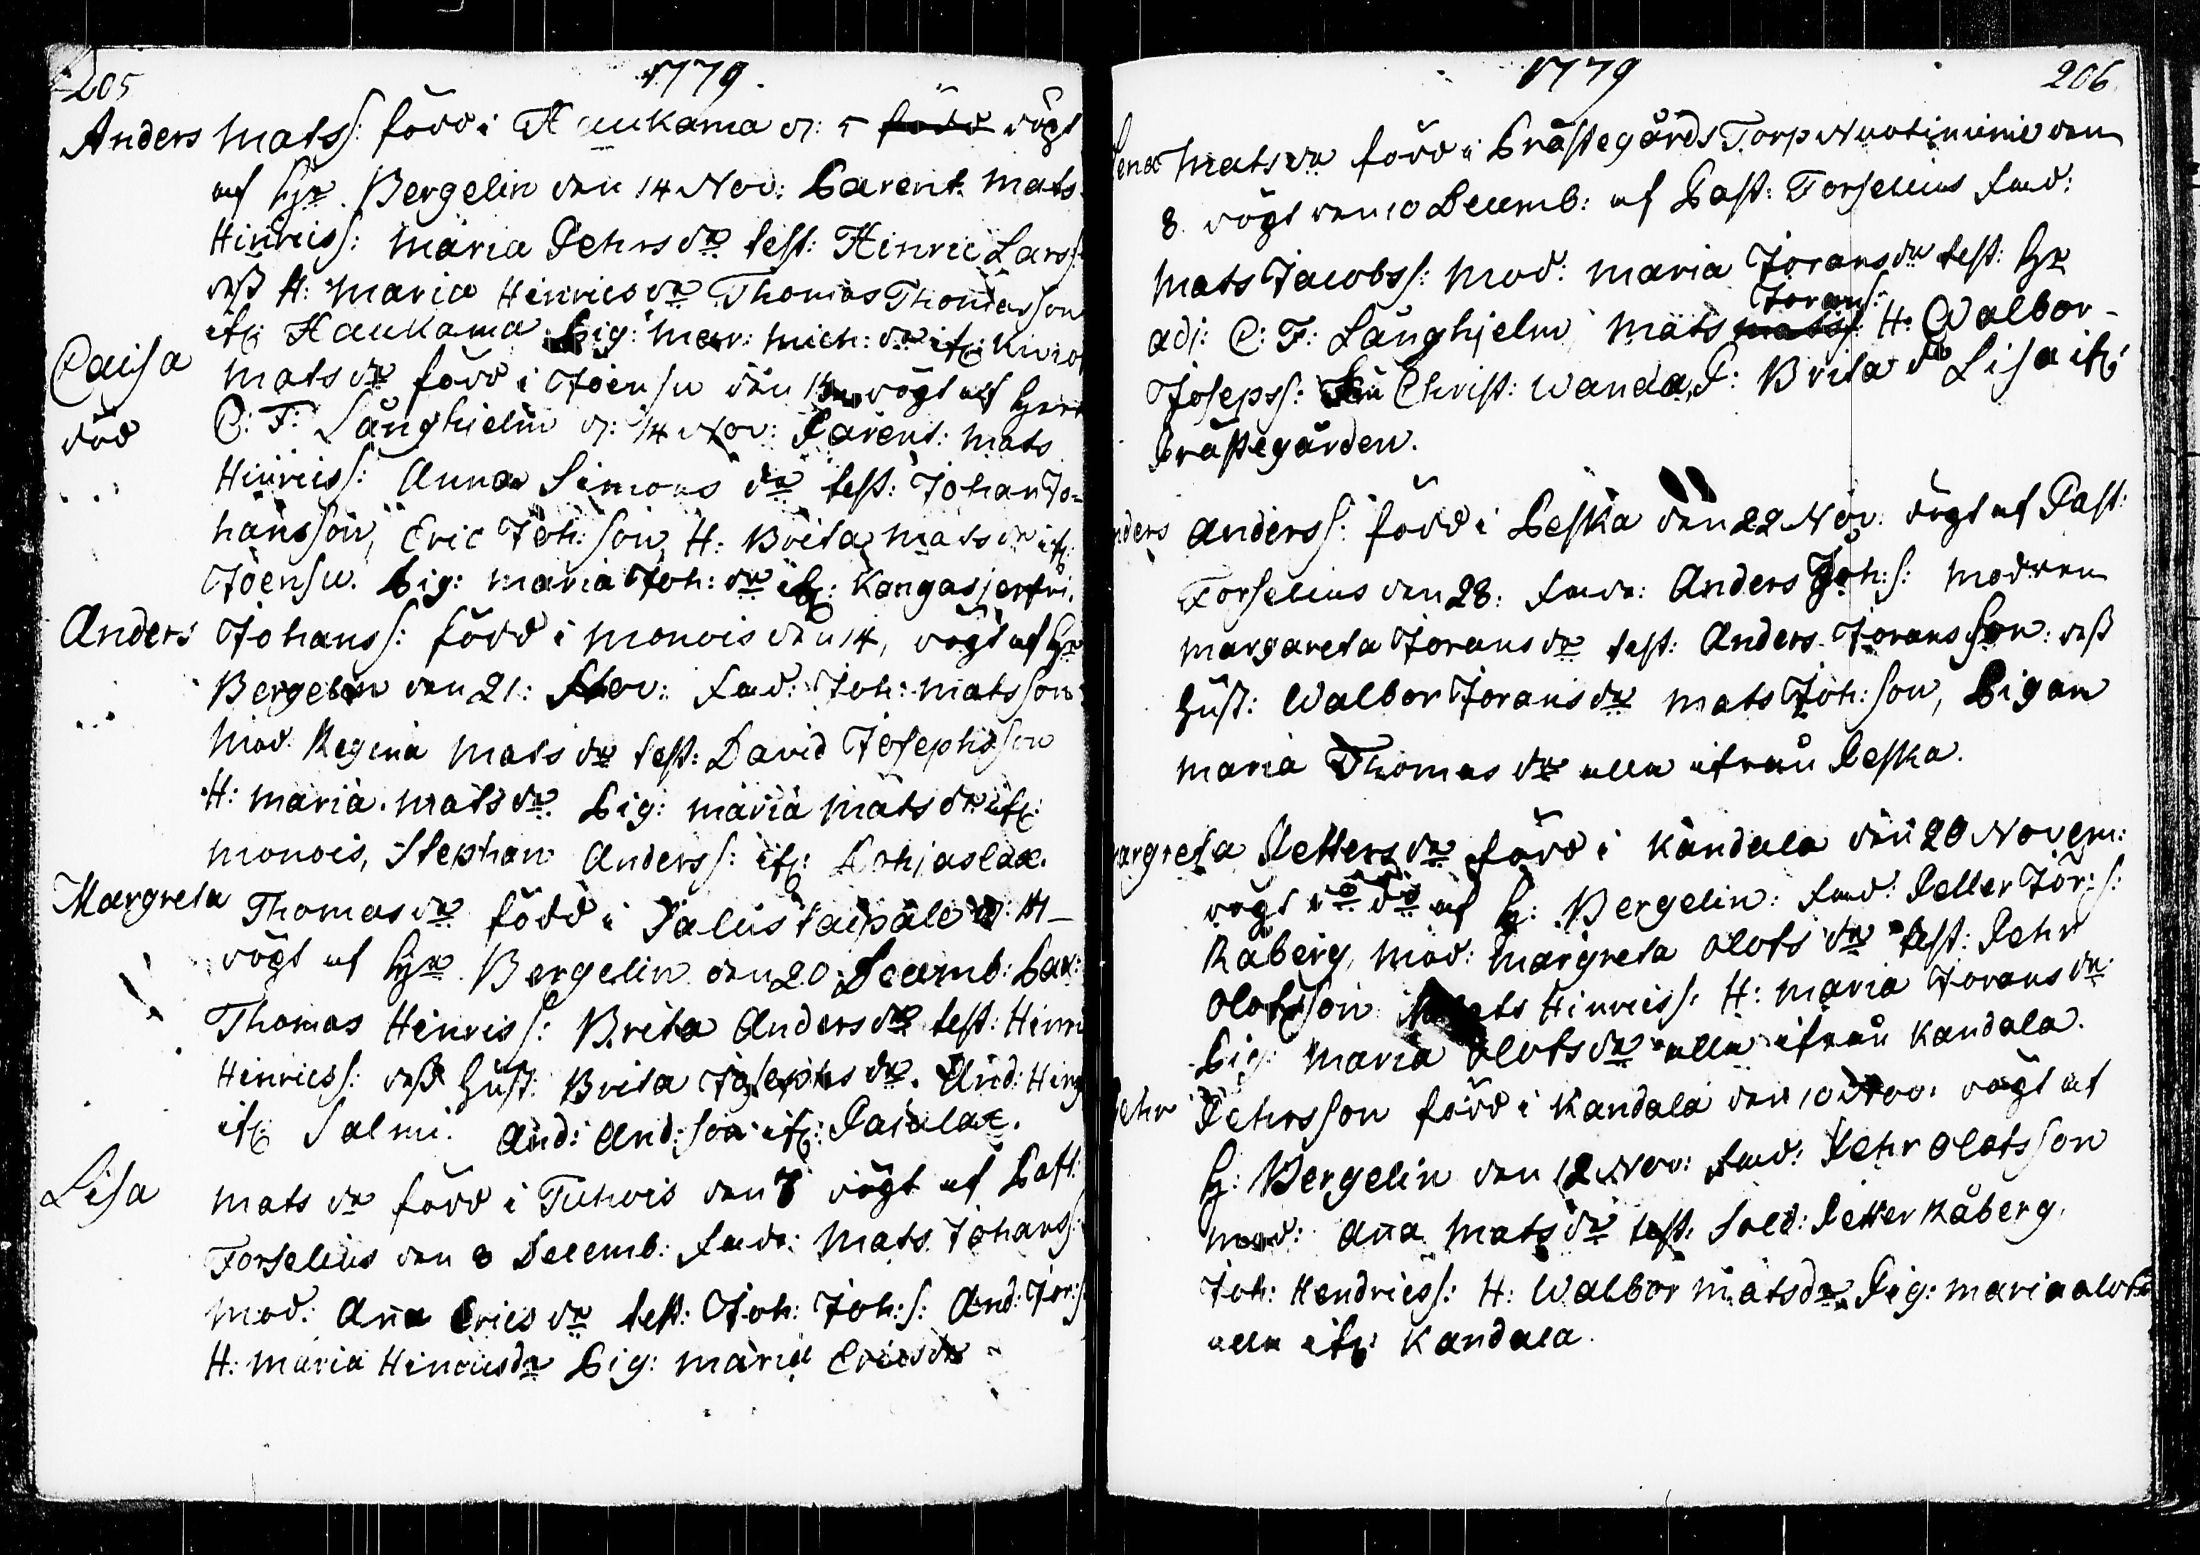 205
1779.
Anders Mats s: född i Haukama d: 5 född dögt
af Hr Bergelin den 14 Nov: Parent: Mats
Hinrics s: Maria Pehrs dr test: Hinric Lars s:
dess H: Maria Hinrics dr Thomas Thomasson
if: Haukama. Pig: Mar: Mich: dr if:
Caisa Mats dr född i Joensu den 13 dögt af Herr
död C: F: Långhielm d: 14 Nov: Parent: Mats
Hinrics s: Anna Simons dr test: Johan Jo-
hansson, Eric Joh: son, H: Brita Mats dr if:
Joensu. Pig: Maria Joh: dr if: Kangasjerfvi.
Anders Johans s: född i Monois den 14, dögt af Hr
Bergelin den 21: Nov: Fad: Joh: Matsson
Mod: Regina Mats dr test: David Josephsson
H: Maria Mats dr Pig: Maria Mats dr if:
Monois, Stephan Anders s: if: Pohjaslax.
Margreta Thomas dr född i Salustaipale d:
dögt af Hr Bergelin den 20 Decemb: Par:
Thomas Hinrics s: Brita Anders dr test: Hinric
Hinrics s: dess Hust: Brita Josephs dr. And: Hinr
if: Salmi. And: And: son if: Pasalax.
Lisa Mats dr född i Tuhvis den 7 dögt af Past:
Forselius den 8 Decemb: Fadr: Mats Johans s:
Mod: Anna Erics dr test: Joh: Joh: s: And: Jor: s:
H: Maria Hinricsdr Pig: Maria Ericsdr
1779
206
Lena Mats dr född i Prästegårds Torp Nuotinimie den
8 dögt den 10 Decemb: af Past: Forselius Fad:
Mats Jacobs s: Mod: Maria Jorans dr test: Hr
adj: C: F: Långhjelm Mats Jorans: H: Walbor
Joseps s: Christ: Wanda, P: Brita dr Lisa if:
Prästegården.
Anders Anders s: född i Peska den 22 Nov: dögt af Past:
Forselius den 28: Fadr: Anders Joh: s: Modren
Margareta Jorans dr test: Anders Joransson: dess
Hust: Walbor Jorans dr Mats Joh: son, Pigan
Maria Thomas dr alla ifrån Peska.
Margreta Petters dr född i Kandala den 20 Novem:
dögt do do af H: Bergelin: Fad: Petter Jör: s:
Råberg, Mod: Margreta Olofs dr test: Pehr
Olofsson Mats Hinrics s: H: Maria Jorans dr
Pig: Maria Olofs dr alla ifrån Kandala.
Pehr Pehrsson född i Kandala den 10 Nov: dögt af
H: Bergelin den 12 Nov: Fad: Pehr Olofsson
Mod: Anna Mats dr test: Sold: Petter Råberg,
Joh: Hendrics s: H: Walbor Mats dr Pig: Maria Olofs dr
alla if: Kandala.